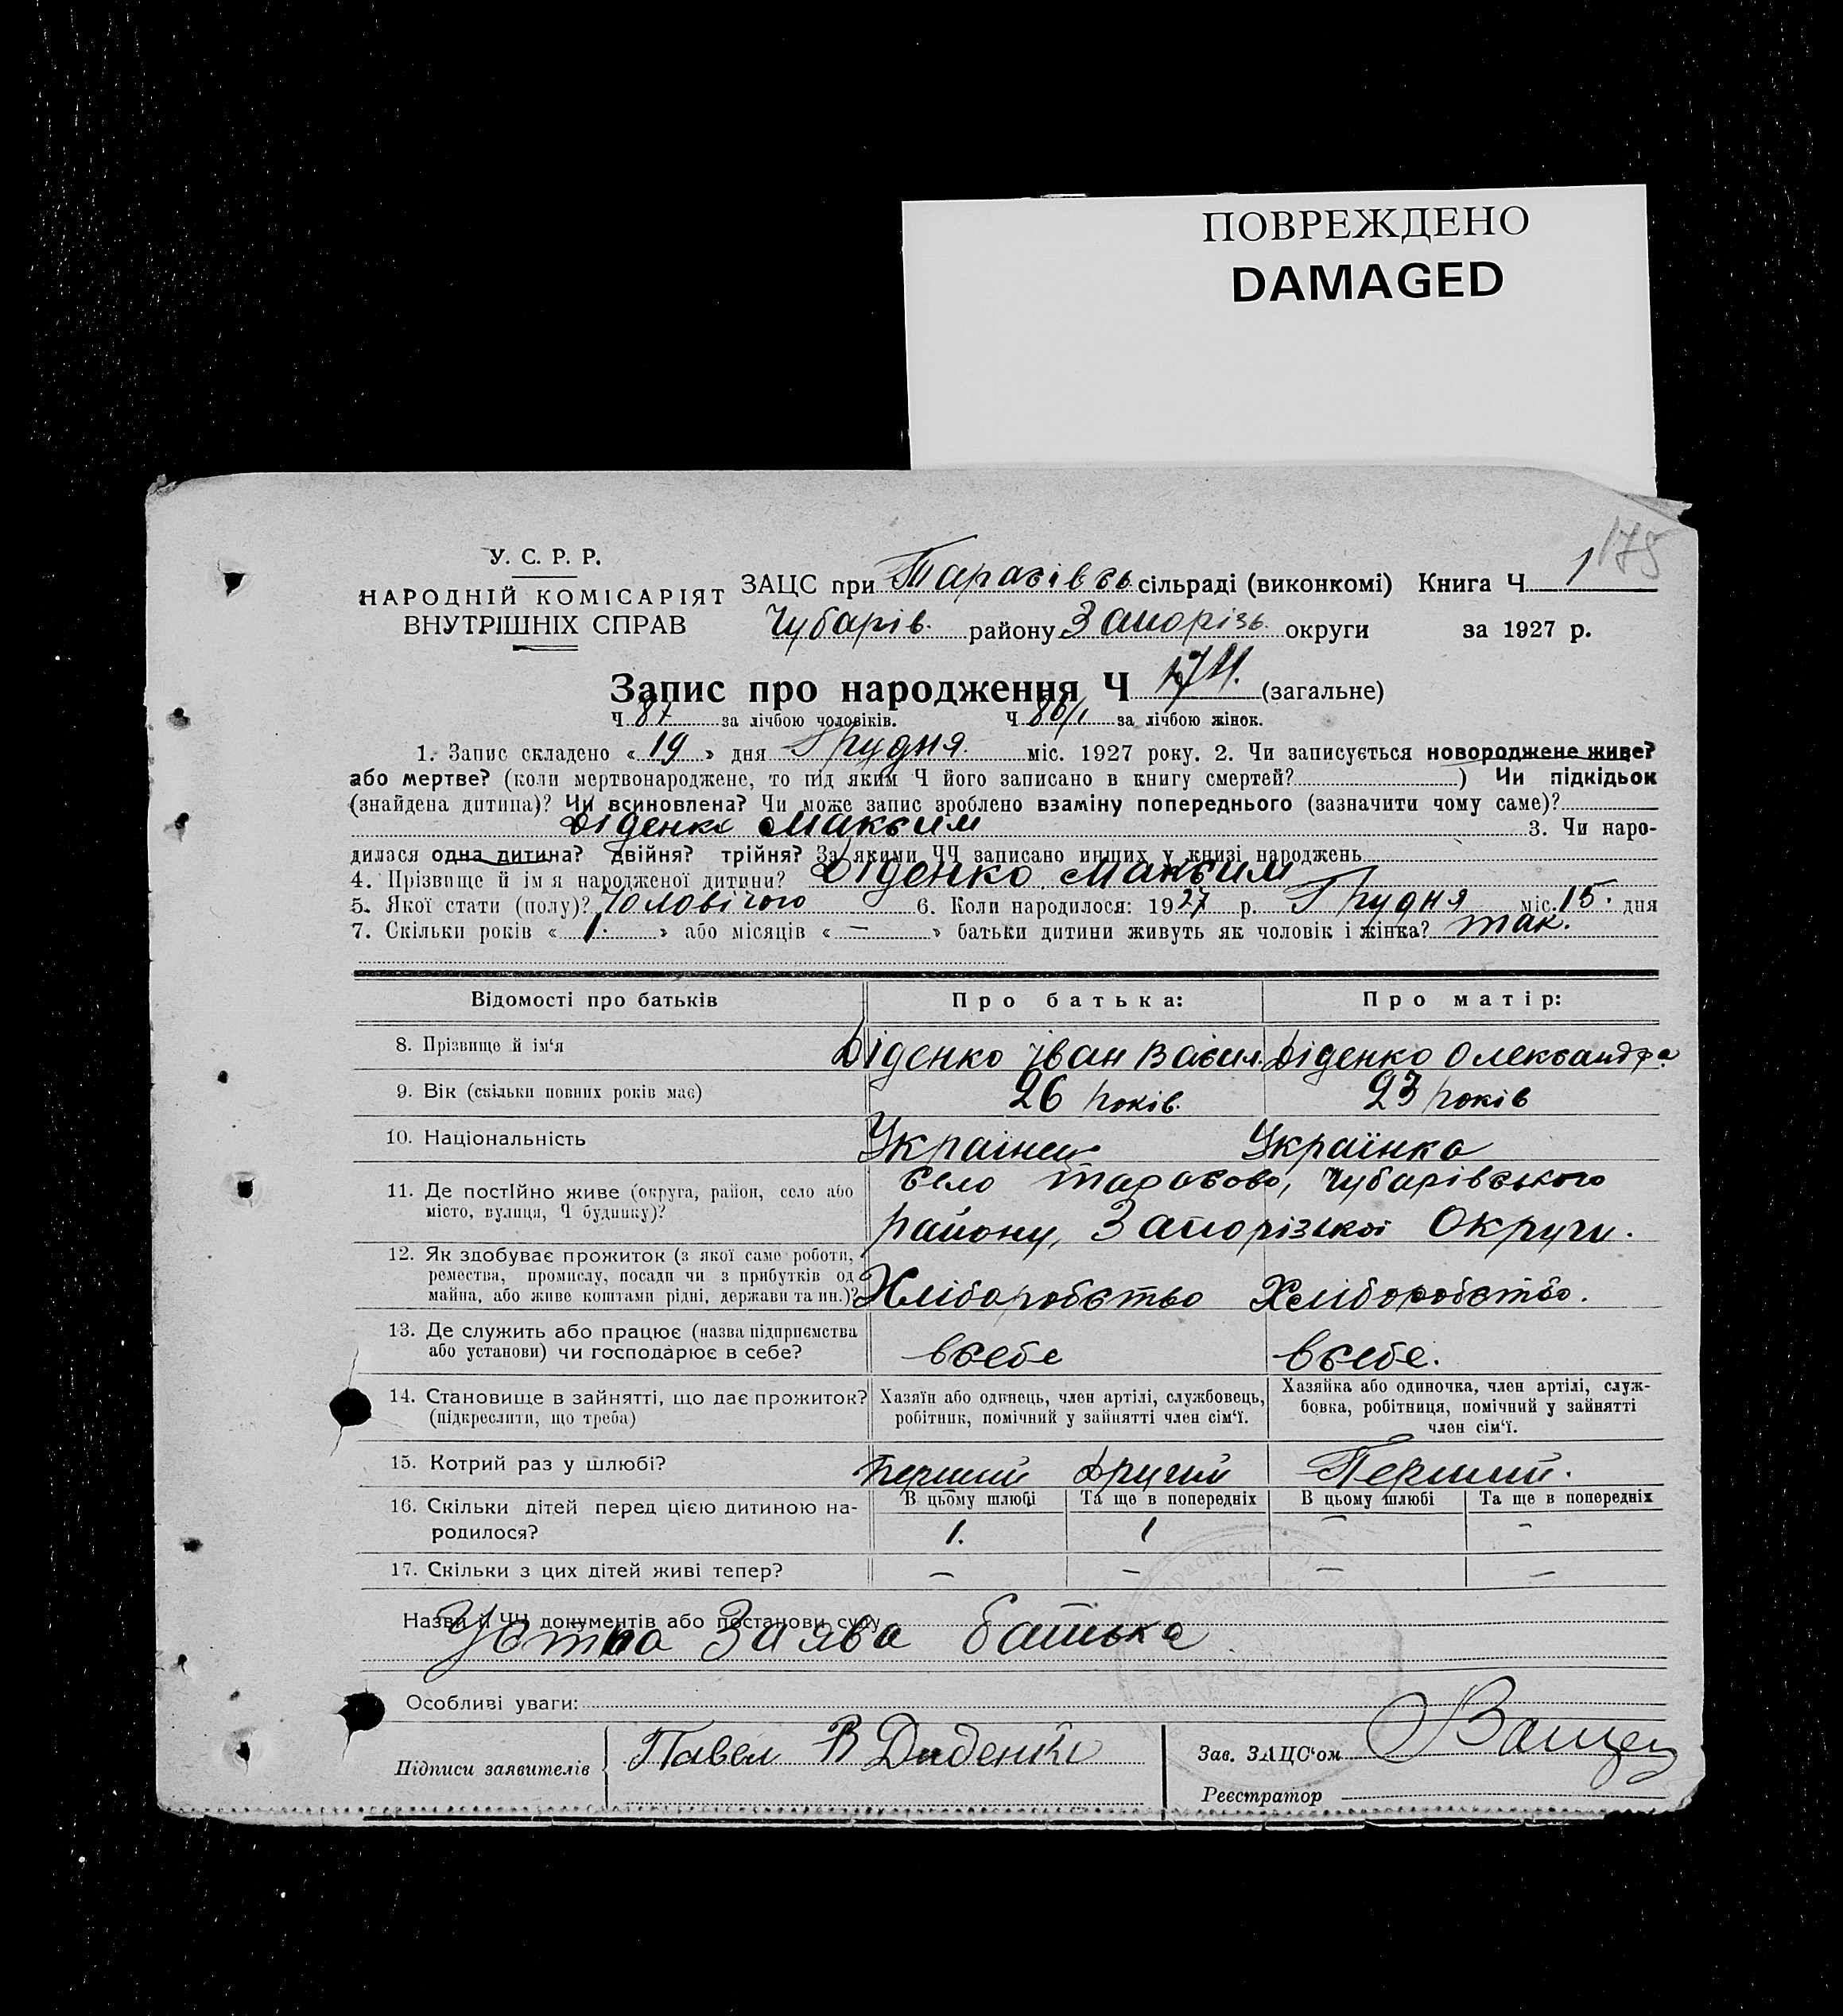 ПОВРЕЖДЕНО
DAMAGED
178
У. С. Р. Р.
НАРОДНІЙ КОМІСАРІЯТ
ВНУТРІШНІХ СПРАВ
ЗАЦС при Тарасівсь сільраді (виконкомі) Книга Ч 1
Чубарів. району Запорізь. округи за 1927 р.
Запис про народження Ч 174. (загальне)
Ч 87 за лічбою чоловіків. Ч 86/1 за лічбою жінок.
1. Запис складено « 19 » дня Грудня міс. 1927 року. 2. Чи записується новороджене живе?
або мертве? (коли мертвонароджене, то під яким Ч його записано в книгу смертей? ) Чи підкідьок
(знайдена дитина)? Чи всиновлена? Чи може запис зроблено взаміну попереднього (зазначити чому саме)?
Діденко Максим 3. Чи наро-
дилася одна дитина? двійня? трійня? За якими ЧЧ записано инших у книзі народжень
4. Прізвище й ім я народженої дитини? Діденко Максим
5. Якої стати (полу)? Чоловічого 6. Коли народилося: 1927 р. Грудня міс. 15. дня
7. Скільки років « 1. » або місяців « — » батьки дитини живуть як чоловік і жінка? так.
Відомості про батьків Про батька: Про матір:
8. Прізвище й ім‘я Діденко Іван Васил. Діденко Олександра
9. Вік (скільки повних років має) 26 років. 23 років
10. Національність Українец Українка
11. Де постійно живе (округа, район, село або
місто, вулиця, Ч будинку)?
село Тарасово, Чубарівського
району, Запорізської Округи.
12. Як здобуває прожиток (з якої саме роботи,
ремества, промислу, посади чи з прибутків од
майна, або живе коштами рідні, держави та ин.)? Хліборобство Хліборобство.
13. Де служить або працює (назва підприємства
або установи) чи господарює в себе? всебе всебе.
14. Становище в зайнятті, що дає прожиток?
(підкреслити, що треба)
Хазяїн або одинець, член артілі, службовець,
робітник, помічний у зайнятті член сім‘ї.
Хазяйка або одиночка, член артілі, служ-
бовка, робітниця, помічний у зайнятті
член сім‘ї.
15. Котрий раз у шлюбі? Перший Другий Перший.
16. Скільки дітей перед цією дитиною на-
родилося?
В цьому шлюбі Та ще в попередніх В цьому шлюбі Та ще в попередніх
1. 1 — —
17. Скільки з цих дітей живі тепер? — — — —
Назви й ЧЧ документів або постанови суду
Устна Заява батька
Особливі уваги:
Підписи заявителів Павел В Диденко
Зав. ЗАЦС‘ом
Реєстратор